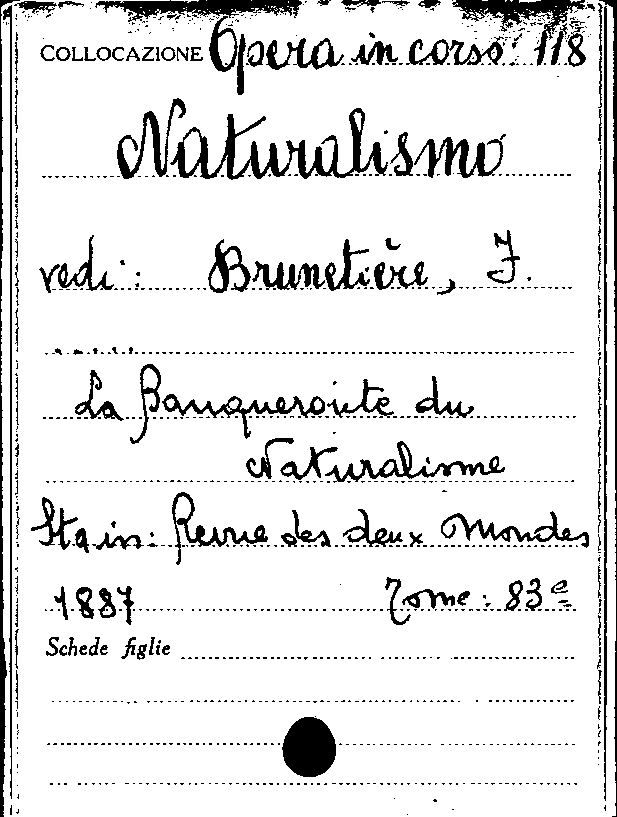 COLLOCAZIONE Opera in corso: 118
Naturalismo
vedi: Brunetière, F.
.....
La Banqueroute du
Naturalisme
Sta in: Revue des deux Mondes
1887 Tome: 83e
Schede figlie